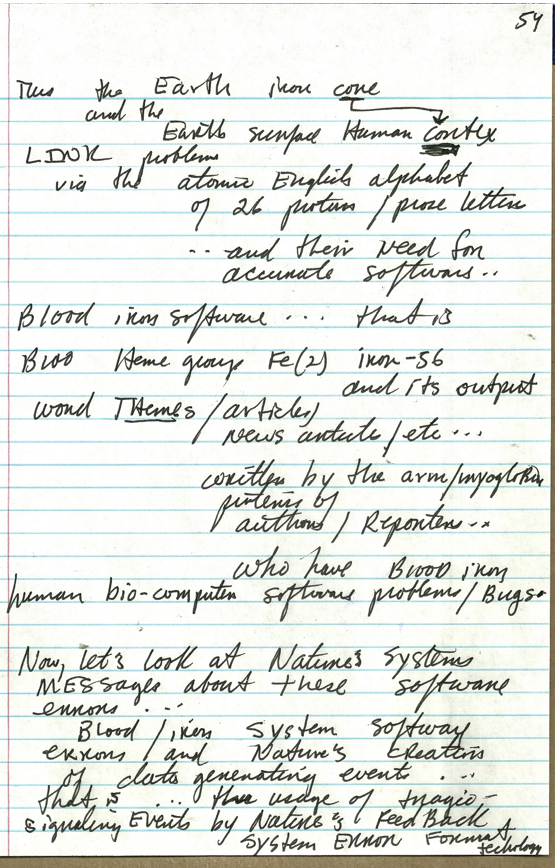 54
Thus the Earth iron core
and the
Earth surface Human Cortex
LINK problems
via the atomic English alphabet
of 26 protons / prose letters
... and their need for
accurate software...
Blood iron software ... that is
Bloo Heme group Fe(2) iron-56
and its output
word THemes / articles /
news article / etc ...
written by the arm/myoglobin
proteins of
authors / Reporters...
who have Blood iron
human bio-computer software problems / Bugs.
Now, let's look at Nature's Systems
MESSages about these software
errors ...
Blood / iron system softway
errors / and Nature's creation
of data generating events ...
that is ... the usage of tragic-
signaling Events by Nature's FeedBack
System Error Format
techology